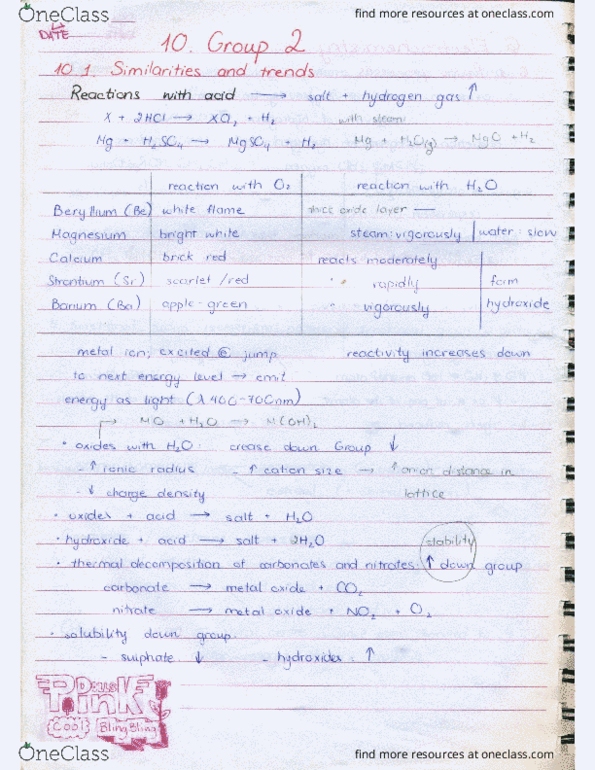 OneClass
find more resources at oneclass.com
DATE
10. Group 2
10.1. Similarities and trends
Reactions with acid ⟶ salt + hydrogen gas ↑
X + 2HCl ⟶ XCl₂ + H₂ with steam
Mg + H₂SO₄ ⟶ MgSO₄ + H₂ Mg + H₂O(g) → MgO + H₂
reaction with O₂ reaction with H₂O
Beryllium (Be) white flame thick oxide layer —
Magnesium bright white steam: vigorously water: slow
Calcium brick red reacts moderately
Strontium (Sr) scarlet / red " rapidly form
Barium (Ba) apple-green " vigorously hydroxide
metal ion; excited @ jump reactivity increases down
to next energy level → emit
energy as light (λ 400-700nm)
MO + H₂O → M(OH)₂
• oxides with H₂O: crease down Group ↓
- ↑ ionic radius - ↑ cation size → ↑ anion distance in
- ↓ charge density lattice
• oxides + acid → salt + H₂O
• hydroxide + acid → salt + 2H₂O stability
• thermal decomposition of carbonates and nitrates: ↑ down group
carbonate → metal oxide + CO₂
nitrate → metal oxide + NO₂ + O₂
• solubility down group:
- sulphate ↓ - hydroxides: ↑
Pink
Cool Bling Bling
OneClass
find more resources at oneclass.com